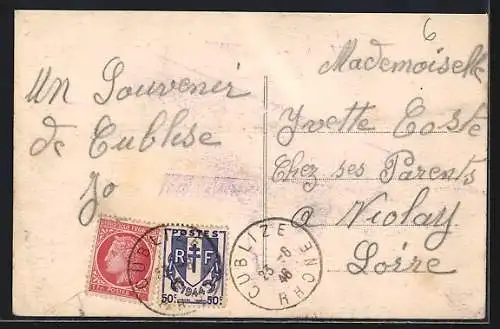 6
Mademoiselle
Un Souvenir
de Cublise
Jo
Yvette Coste
Chez ses Parents
a Violay
Loire
POSTES
RF
50c 50c
1944
CUBLIZE
RHONE
23 -8
46